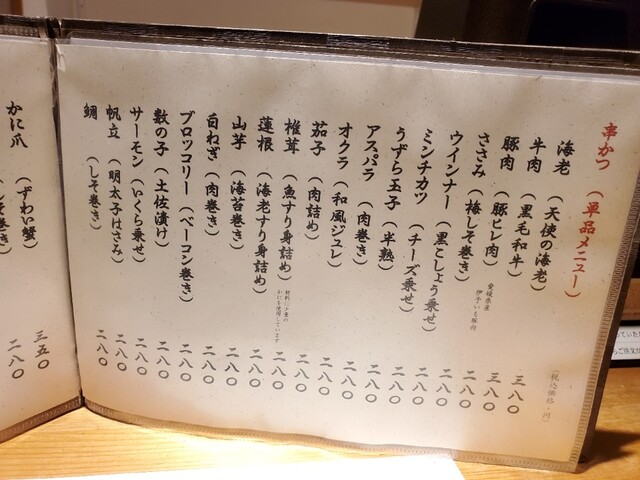 串かつ (単品メニュー)
(税込価格・円)
海老 (天使の海老) 三八〇
牛肉 (黒毛和牛) 三八〇
豚肉 (豚ヒレ肉) 愛媛県産 二八〇
ささみ (梅しそ巻き) 二八〇
ウインナー (黒こしょう乗せ) 二八〇
ミンチカツ (チーズ乗せ) 二八〇
うずら玉子 (半熟) 二八〇
アスパラ (肉巻き) 二八〇
オクラ (和風ジュレ) 二八〇
茄子 (肉詰め) 二八〇
椎茸 (魚すり身詰め) 材料に少量のかにを使用しています 二八〇
蓮根 (海老すり身詰め) 二八〇
山芋 (海苔巻き) 二八〇
白ねぎ (肉巻き) 二八〇
ブロッコリー (ベーコン巻き) 二八〇
数の子 (土佐漬け) 二八〇
サーモン (いくら乗せ) 二八〇
帆立 (明太子はさみ) 二八〇
鯛 (しそ巻き) 二八〇
かに爪 (ずわい蟹) 三五〇
巻き) 二八〇